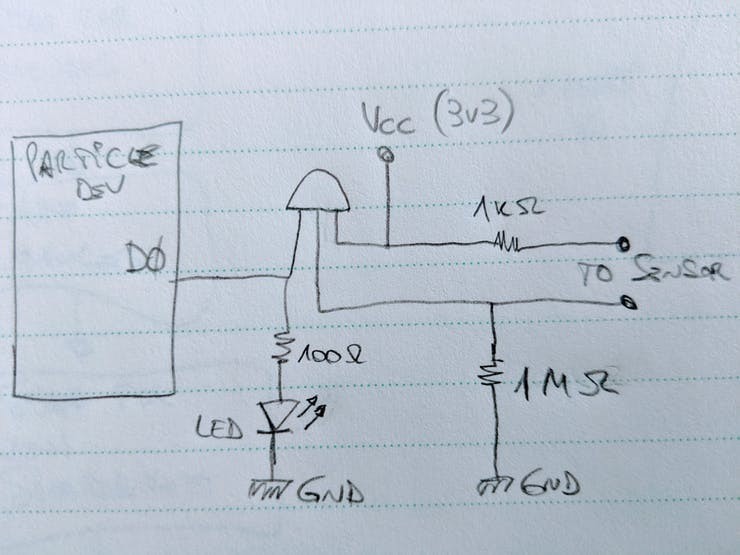 Vcc (3v3)
PARTICLE
DEV
1KΩ
DØ
TO SENSOR
100Ω
1MΩ
LED
GND
GND